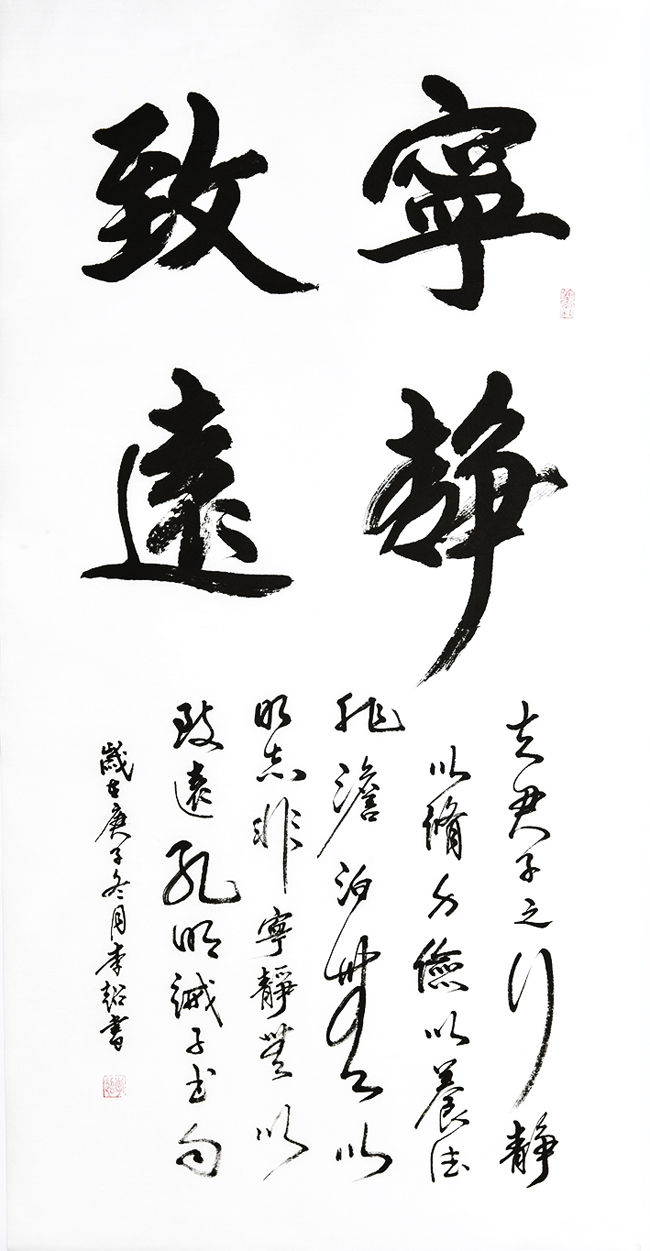 寧靜
致遠
夫君子之行靜
以脩身儉以養德
非澹泊無以
明志非寧靜無以
致遠孔明誡子書句
歲在庚子冬月李超書